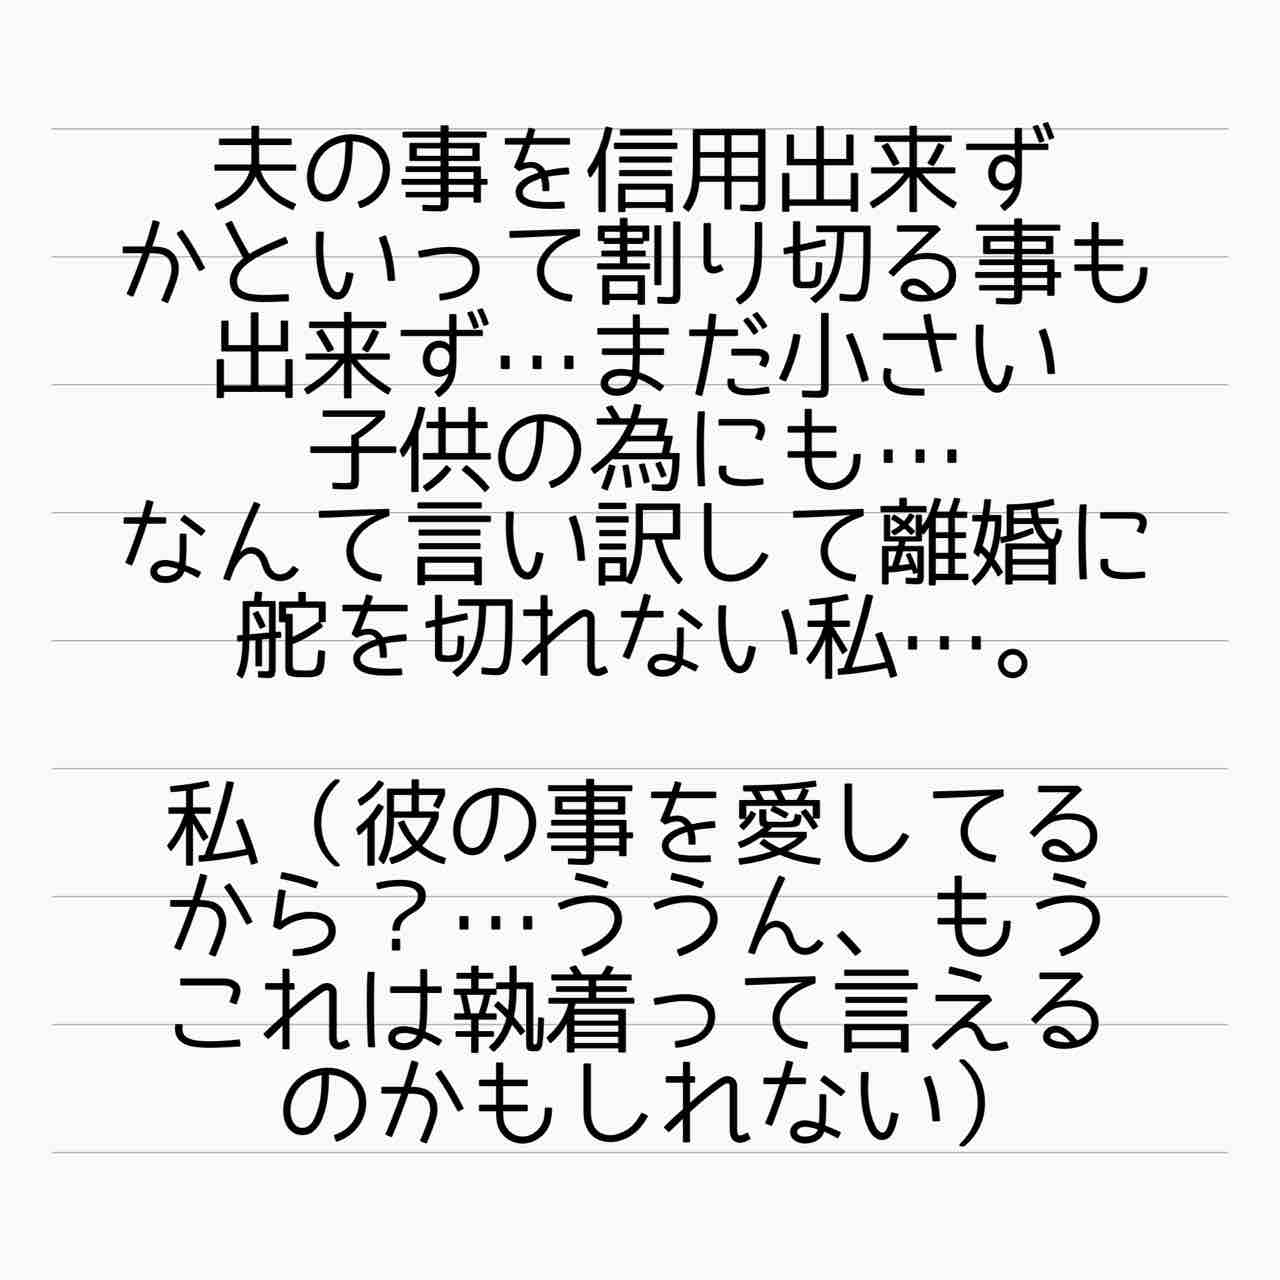 夫の事を信用出来ず
かといって割り切る事も
出来ず…まだ小さい
子供の為にも…
なんて言い訳して離婚に
舵を切れない私…。
私（彼の事を愛してる
から？…ううん、もう
これは執着って言える
のかもしれない）